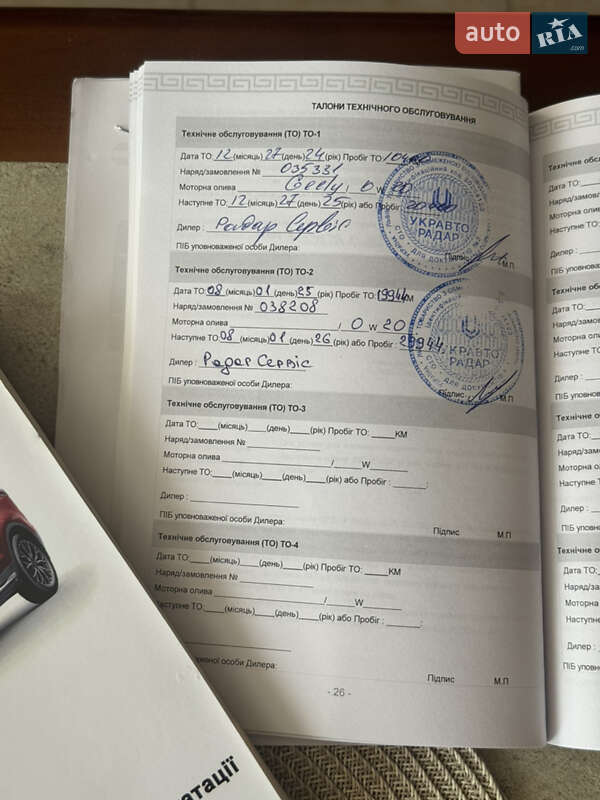 auto RIA .com
ТАЛОНИ ТЕХНІЧНОГО ОБСЛУГОВУВАННЯ
Технічне обслуговування (ТО) ТО-1
Дата ТО 12 (місяць) 27 (день) 24 (рік) Пробіг ТО:
Наряд/замовлення № 035331
Моторна олива Geely / 0 W 20
Наступне ТО: 12 (місяць) 27 (день) 25 (рік) або Пробіг:
Дилер : Радар Сервіс
Підпис М.П
ПІБ уповноваженої особи Дилера:
УКРАВТО РАДАР
Технічне обслуговування (ТО) ТО-2
Дата ТО: 08 (місяць) 01 (день) 25 (рік) Пробіг ТО: 19944 КМ
Наряд/замовлення № 038208
Моторна олива / 0 W 20
Наступне ТО: 08 (місяць) 01 (день) 26 (рік) або Пробіг : 29944
Дилер : Радар Сервіс
Підпис М.П
ПІБ уповноваженої особи Дилера:
УКРАВТО РАДАР
Технічне обслуговування (ТО) ТО-3
Дата ТО:____(місяць)____(день)____(рік) Пробіг ТО: _____КМ
Наряд/замовлення № __________________
Моторна олива ______________________/_______W________
Наступне ТО:____(місяць)____(день)____(рік) або Пробіг : _______;
Дилер : __________________
ПІБ уповноваженої особи Дилера:
Підпис М.П
Технічне обслуговування (ТО) ТО-4
Дата ТО:____(місяць)____(день)____(рік) Пробіг ТО: _____КМ
Наряд/замовлення № __________________
Моторна олива ______________________/_______W________
Наступне ТО:____(місяць)____(день)____(рік) або Пробіг : _______;
женої особи Дилера:
Підпис М.П
- 26 -
Технічне о
Дата ТО:
Наряд/замо
Моторна
Наступне ТО
Дилер :
ПІБ уповнов
Технічне о
Дата ТО:
Наряд/замо
Моторна
Наступне Т
Дилер :
ПІБ уповнов
Технічне о
Дата ТО:
Наряд/замо
Моторна о
Наступне Т
Дилер :
ПІБ уповно
Технічне о
Дата ТО:
Наряд/зам
Моторна
Наступне
Дилер :
ПІБ уповн
атації